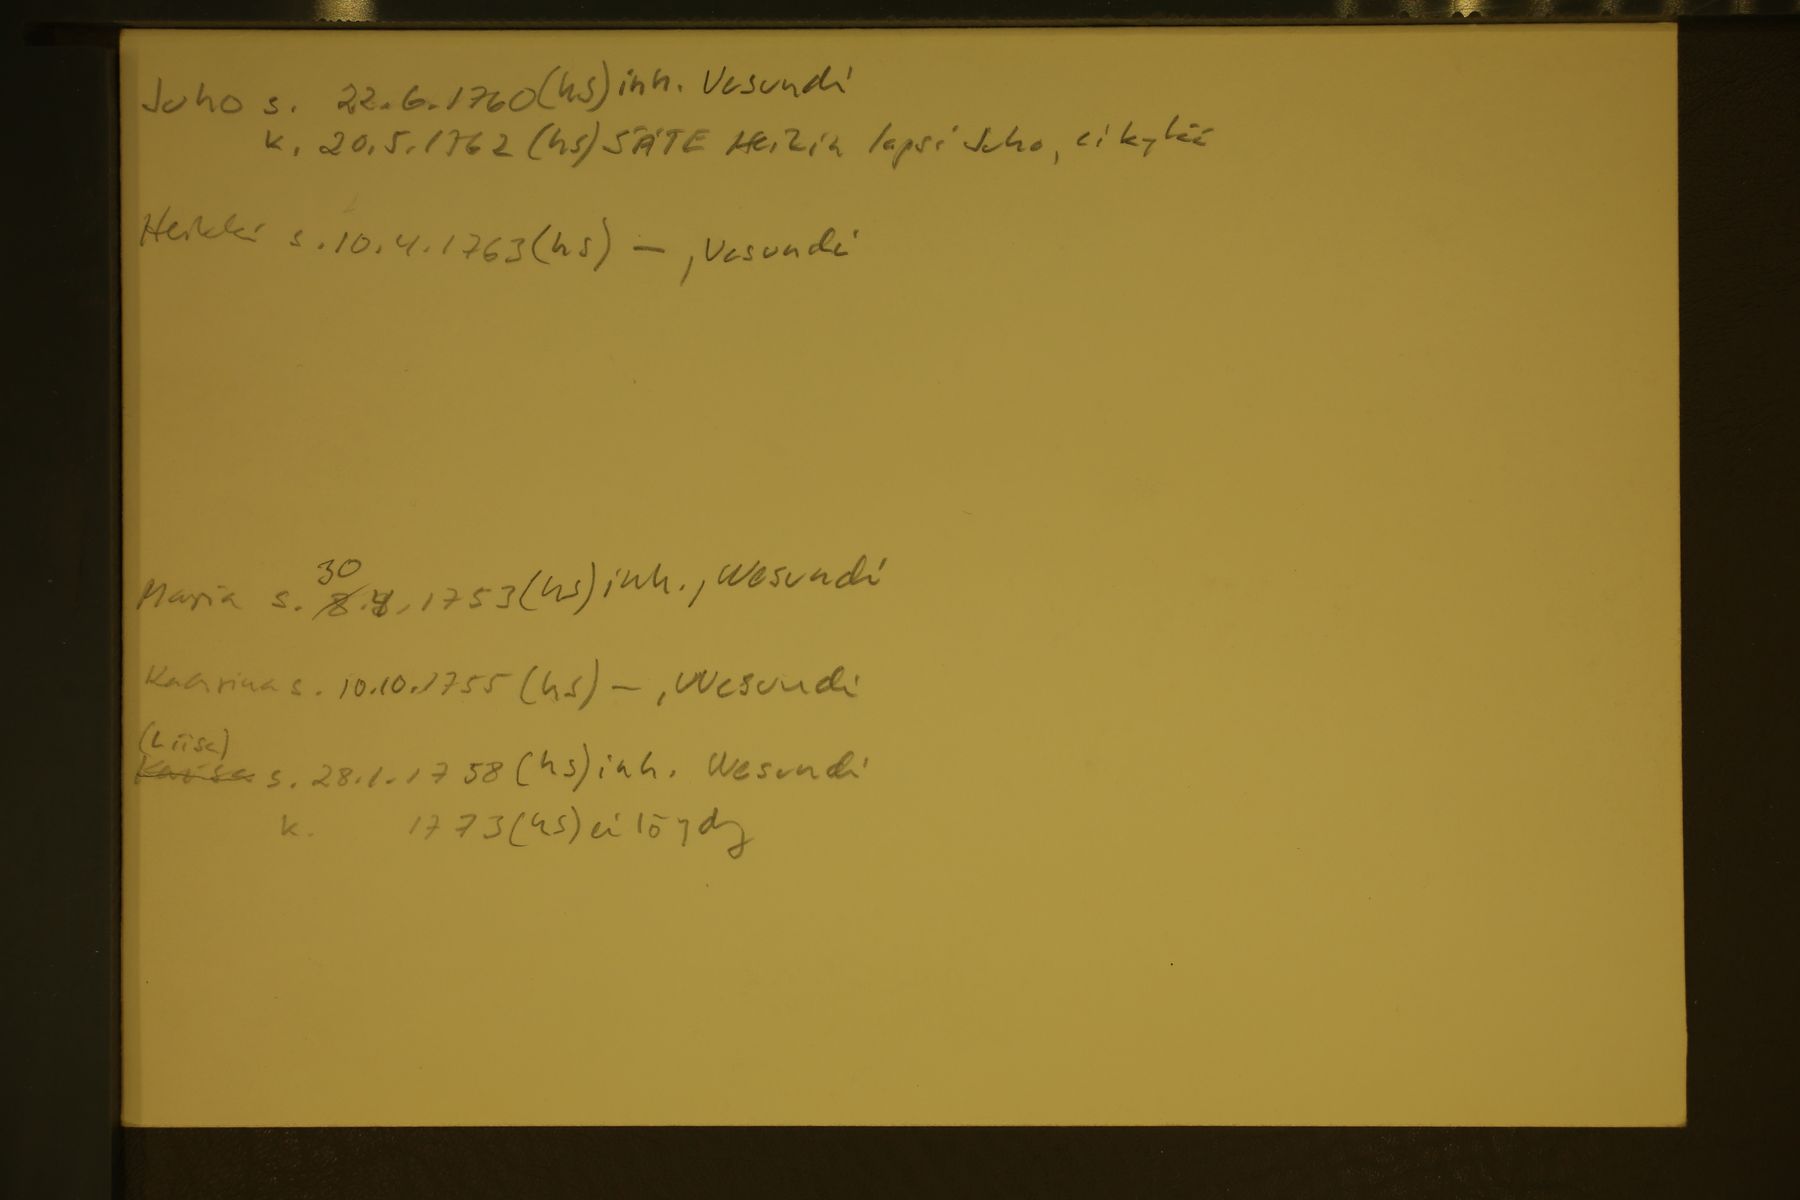 Juho s. 22.6.1760 (hs) inh. Vesundi
k. 20.5.1762 (hs) SÄTE Heikin lapsi Juho, ei kylää
Heikki s. 10.4.1763 (hs) —, Vesundi
30
Maria s. 8.4.1753 (hs) inh., Wesundi
Katarina s. 10.10.1755 (hs) —, Wesundi
(Liisa)
s. 28.1.1758 (hs) inh. Wesundi
k. 1773 (hs) ei löydy